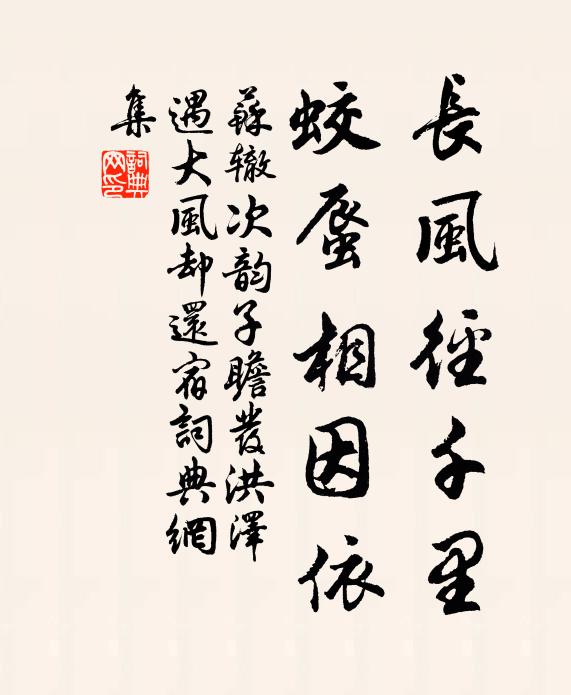 長風徑千里
蛟蜃相因依
蘇辙次韵子瞻發洪澤
遇大風却還宿詞典網
集
詞典
网印